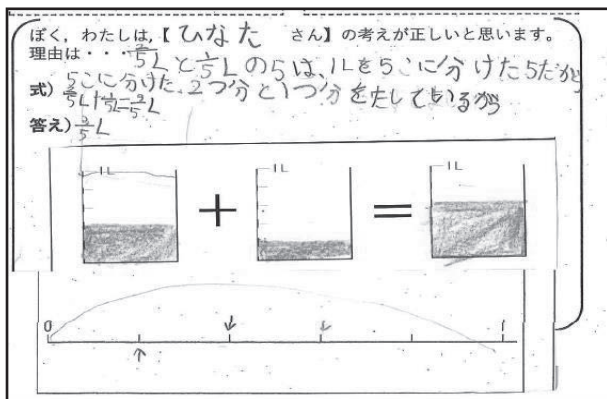 ぼく，わたしは，【 ひなた さん】の考えが正しいと思います。
理由は・・・2/5Lと1/5Lの5は、1Lを5こに分けた5だから
5こに分けた、2つ分と1つ分をたしているから
式）2/5L+1/5L=3/5L
答え）3/5L
1L 1L 1L
+ =
0 1